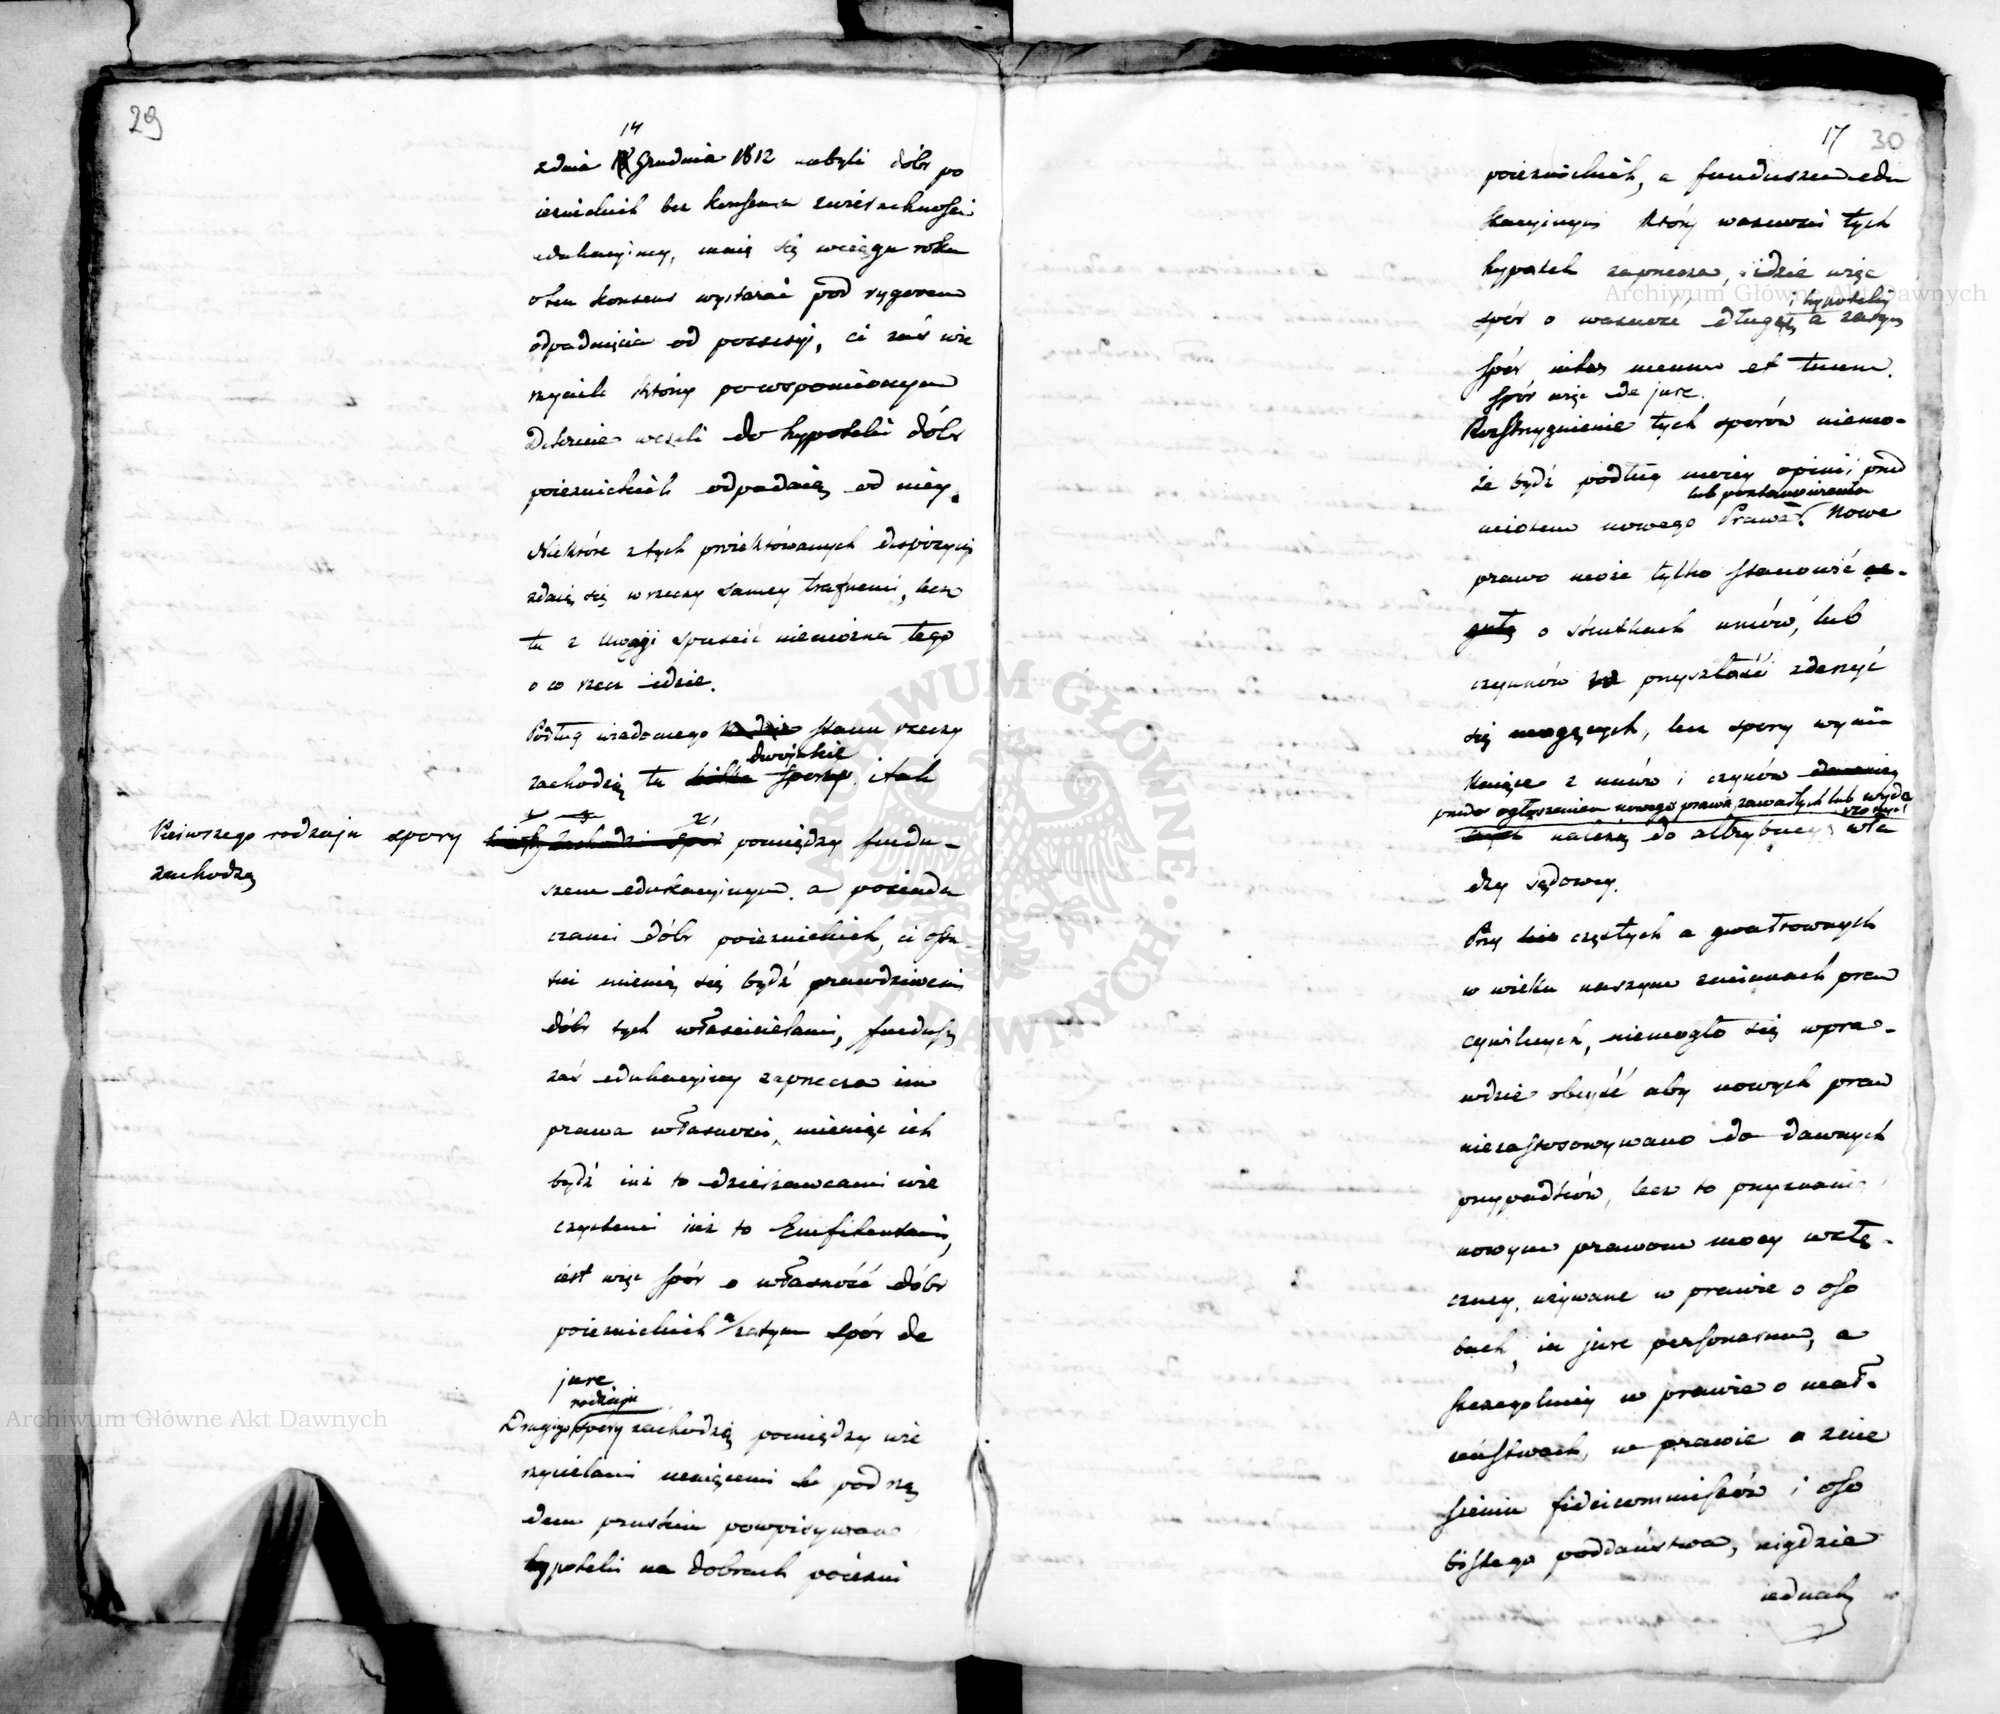 29
14
zdnia Grudnia 1812 nabyli dóbr po
iezuickich bez konsensu zwierzchności
edukacyiney, maią się wciągu roku
o ten konsens wystarać pod rygorem
odpadnięcia od possessyi, ci zaś wie
rzyciele którzy po wspomnionym
Dekrecie weszli do hypoteki dóbr
poiezuickich odpadaią od niey.
Niektóre z tych proiektowanych dispozycyi
zdaią się w rzeczy samey trafnemi, lecz
tu z uwagi spuścić niemożna tego
o co rzecz idzie.
Podług wiadomego stanu rzeczy
dwojakie
zachodzą tu kilka spory. i tak
Pierwszego rodzaju spory pomiędzy fundu-
zachodzą
szem edukacyinym a posiada
czami dóbr poiezuickich, ci osta
tni mienią się bydź prawdziwemi
dóbr tych właścicielami, fundusz
zaś edukacyiny zaprzecza im
prawa własności, mieniąc ich
bydź iuż to dzierżawcami wie
czystemi iuż to Emfiteutami,
iest więc spór o własność dóbr
poiezuickich a zatym spór de
jure
rodzaju
Drugiego spory zachodzą pomiędzy wie
rzycielami maiącemi pod rzą
dem pruskim powpisywane
hypoteki na dobrach poiezui
17 30
poiezuickich, a funduszem edu
kacyinym który ważności tych
hypotek zaprzecza, idzie więc
i hypoteki
spór o ważność długu, a zatym
spór inter meum et tuum.
spór więc de jure.
Rozstrzygnienie tych sporów niemo-
że bydź podług moiey opinii przed
lub postanowienia
miotem nowego Prawa. Nowe
prawo może tylko stanowić re-
gułę o skutkach umów, lub
czynów na przyszłość zdarzyć
się mogących, lecz spory wyni
kaiące z umów i czynów
przed ogłoszeniem nowego prawa zawartych lub wyda
rzonych
należą do attrybucyi wła
dzy sądowey.
Przy częstych a gwałtownych
w wieku naszym zmianach praw
cywilnych, niemogło się wpra-
wdzie obeyść aby nowych praw
niezastosowywano do dawnych
przypadków, lecz to przyznanie
nowym prawom mocy wstę-
czney, używane w prawie o oso
bach, in jure personarum, a
szczegolniey w prawie o mał-
żeństwach, w prawie o znie
sieniu fideicommissów i oso
bistego poddaństwa, nigdzie
iednak
Archiwum Główne Akt Dawnych
Archiwum Główne Akt Dawnych
ARCHIWUM GŁÓWNE AKT DAWNYCH